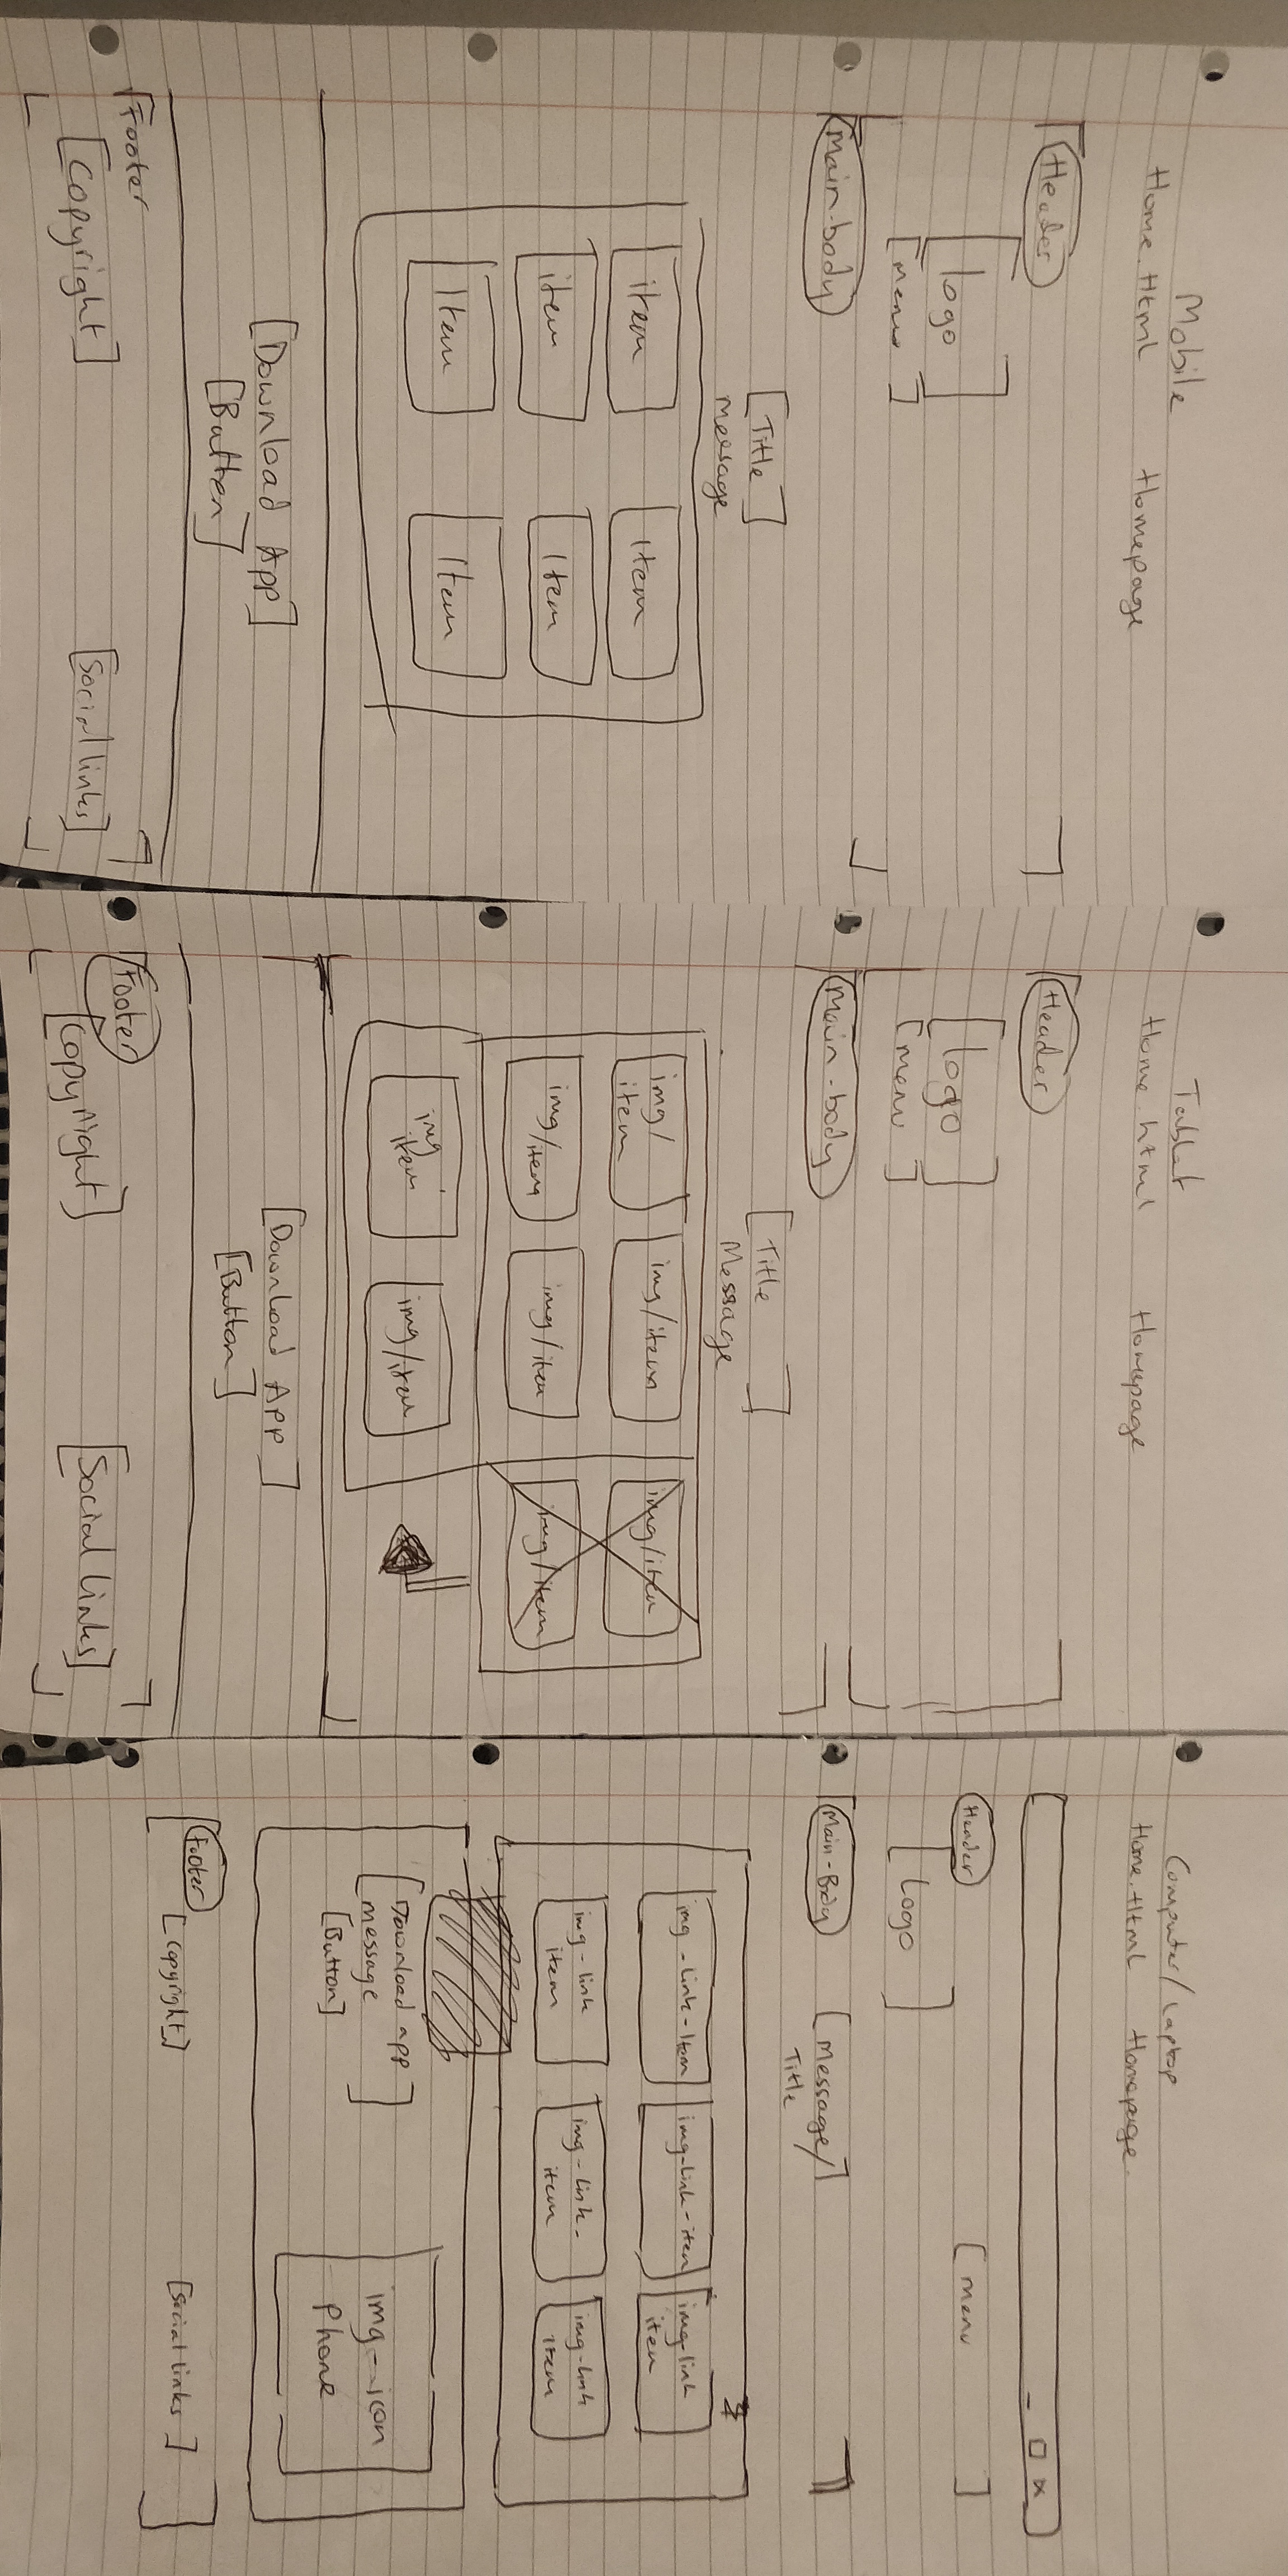 Mobile
Home.Html Homepage
Header
logo
[menu]
Main-body
[Title]
message
item Item
item Item
Item Item
[Download App]
[Button]
Footer
[Copyright] [Social links]
Tablet
Home.html Homepage
Header
[logo]
[menu]
Main-body
[Title]
Message
img/ item img/item img/item
img/item img/item img/item
img item img/item
[Download App]
[Button]
Footer
[Copyright] [Social links]
Computer/Laptop
Home.Html Homepage
_ □ x
Header [menu]
[Logo]
Main-Body [Message/]
Title
img-link-Item img-link-item img-link item
img-link item img-link-item img-link Item
[Download app
message]
[Button]
img-icon
Phone
Footer
[Copyright] [Social links]